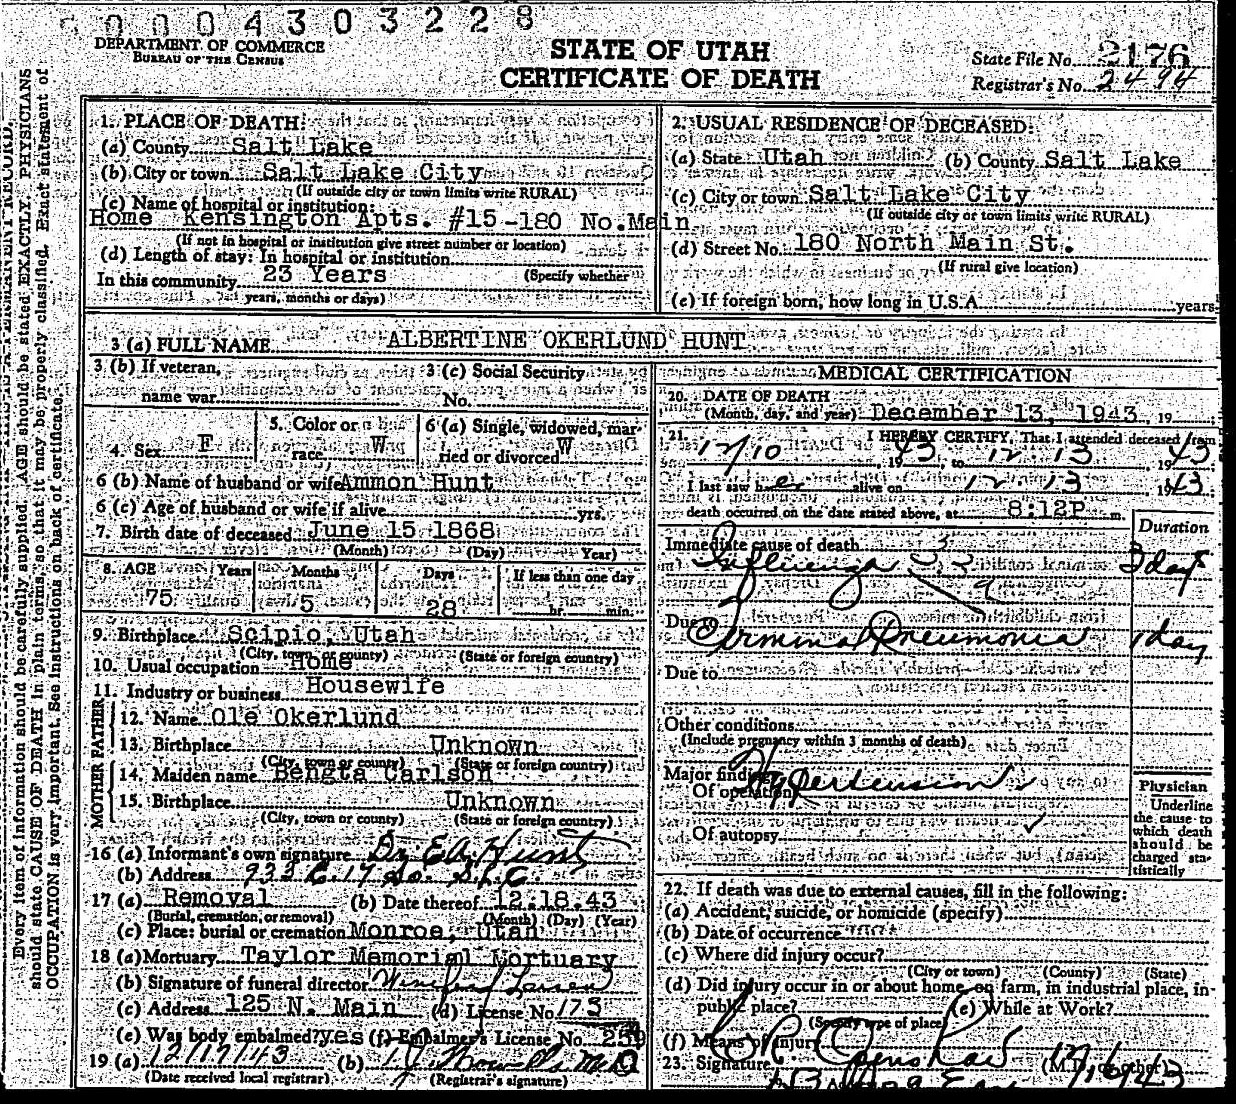 00004303228
DEPARTMENT OF COMMERCE
BUREAU OF THE CENSUS
STATE OF UTAH
CERTIFICATE OF DEATH
State File No. 2176
Registrar's No. 2494
Every item of information should be carefully supplied. AGE should be stated EXACTLY. PHYSICIANS
should state CAUSE OF DEATH in plain terms, so that it may be properly classified. Exact statement of
OCCUPATION is very important. See instructions on back of certificate.
1. PLACE OF DEATH:
(a) County Salt Lake
(b) City or town Salt Lake City
(If outside city or town limits write RURAL)
(c) Name of hospital or institution:
Home Kensington Apts. #15-180 No.Main
(If not in hospital or institution give street number or location)
(d) Length of stay: In hospital or institution
(Specify whether
In this community 23 Years
years, months or days)
2. USUAL RESIDENCE OF DECEASED:
(a) State Utah (b) County Salt Lake
(c) City or town Salt Lake City
(If outside city or town limits write RURAL)
(d) Street No. 180 North Main St.
(If rural give location)
(e) If foreign born, how long in U.S.A. years
3 (a) FULL NAME ALBERTINE OKERLUND HUNT
3 (b) If veteran, name war
3 (c) Social Security No.
4. Sex F
5. Color or race W
6 (a) Single, widowed, married or divorced W
6 (b) Name of husband or wife Ammon Hunt
6 (c) Age of husband or wife if alive yrs.
7. Birth date of deceased June 15 1868
(Month) (Day) Year)
8. AGE Years Months Days If less than one day
75 5 28 hr. min.
9. Birthplace Scipio, Utah
(City, town, or county) (State or foreign country)
10. Usual occupation Home
11. Industry or business Housewife
FATHER
12. Name Ole Okerlund
13. Birthplace Unknown
(City, town or county) (State or foreign country)
MOTHER
14. Maiden name Bengta Carlson
15. Birthplace Unknown
(City, town or county) (State or foreign country)
16 (a) Informant's own signature Dr. E A Hunt
(b) Address 933 E. 17 So. S.L.C.
17 (a) Removal (b) Date thereof 12.18.43
(Burial, cremation, or removal) (Month) (Day) (Year)
(c) Place: burial or cremation Monroe, Utah
18 (a) Mortuary Taylor Memorial Mortuary
(b) Signature of funeral director Winifred Larsen
(c) Address 125 N. Main (d) License No. 173
(e) Was body embalmed? yes (f) Embalmer's License No.
19 (a) 12/17/43 (b)
(Date received local registrar) (Registrar's signature)
MEDICAL CERTIFICATION
20. DATE OF DEATH
(Month, day, and year) December 13, 1943, 19
21. I HEREBY CERTIFY, That I attended deceased from
12/10, 1943, to 12 13, 1943
I last saw her alive on 12 13, 1943
death occurred on the date stated above, at 8:12P m.
Duration
Immediate cause of death
Influenza 3 days
Due to
Terminal Pneumonia 1 day
Due to
Other conditions
(Include pregnancy within 3 months of death)
Hypertension
Major findings:
Of operation
Of autopsy
Physician
Underline
the cause to
which death
should be
charged sta-
tistically
22. If death was due to external causes, fill in the following:
(a) Accident, suicide, or homicide (specify)
(b) Date of occurrence
(c) Where did injury occur?
(City or town) (County) (State)
(d) Did injury occur in or about home, on farm, in industrial place, in-
public place? (e) While at Work?
(Specify type of place)
(f) Means of injury
23. Signature (M.D. or other)